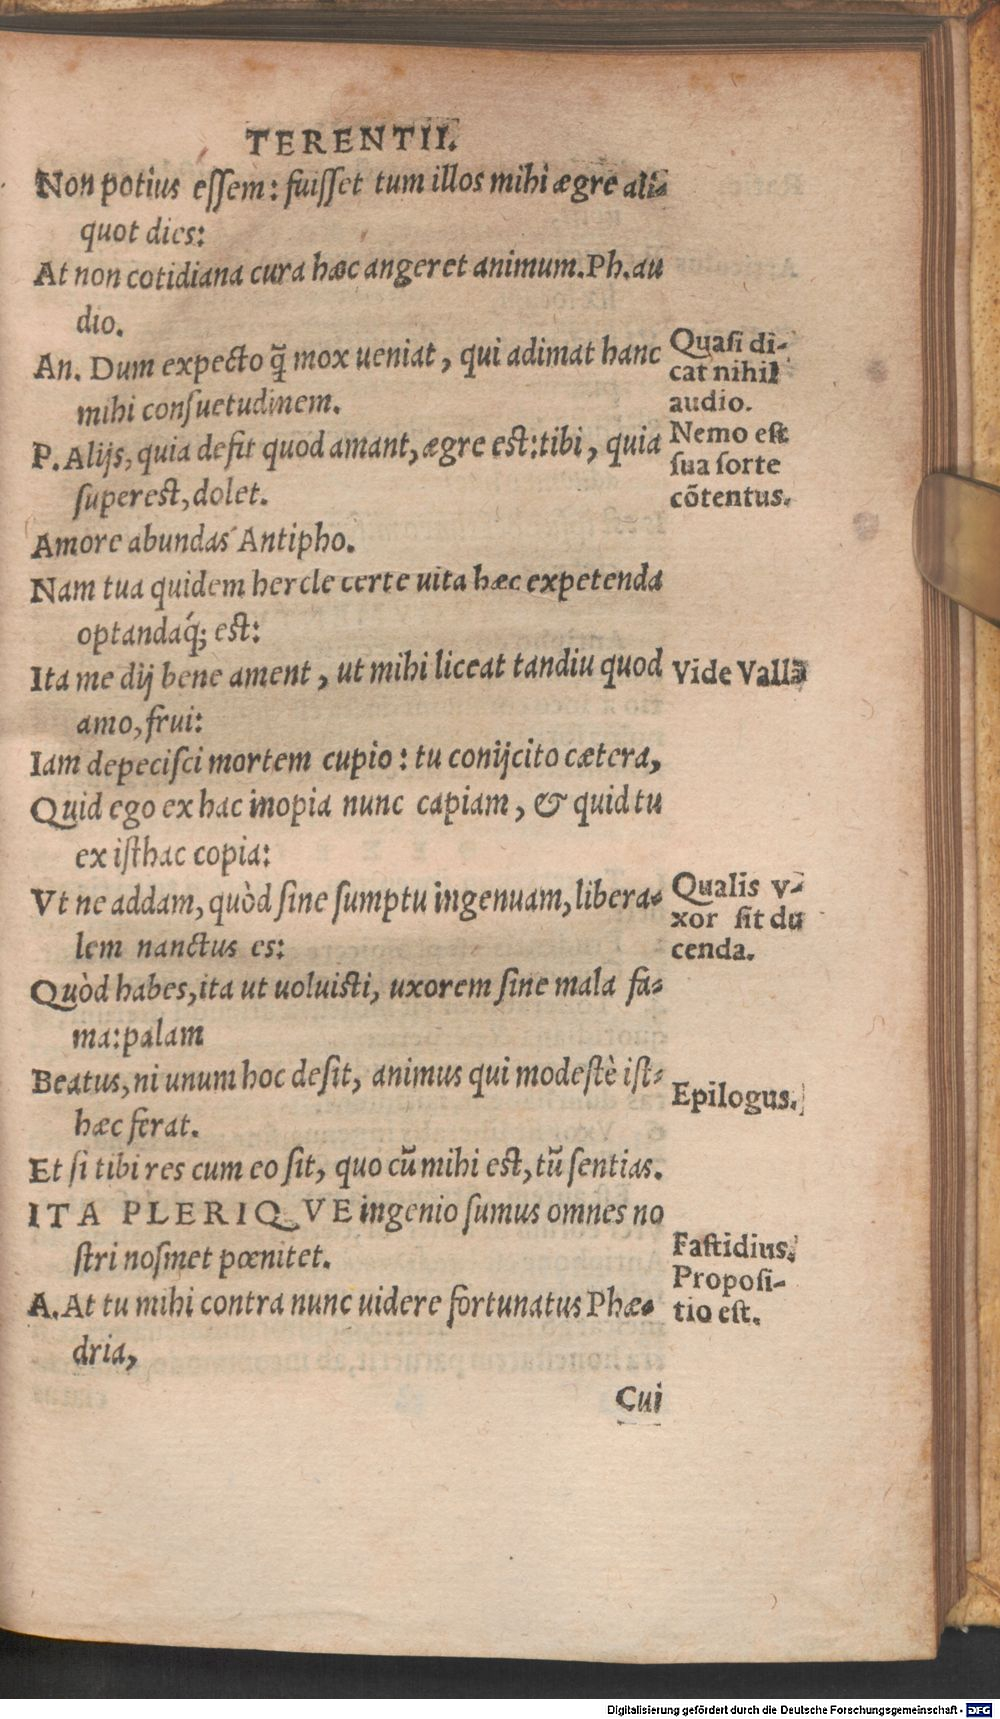 TERENTII.
Non potius essem: fuisset tum illos mihi ægre ali-
quot dies:
At non cotidiana cura hæc angeret animum. Ph. au
dio.
An. Dum expecto q̃ mox ueniat, qui adimat hanc
mihi consuetudinem.
P. Alijs, quia defit quod amant, ægre est: tibi, quia
superest, dolet.
Amore abundas Antipho.
Nam tua quidem hercle certe uita hæc expetenda
optandaq́; est:
Ita me dij bene ament, ut mihi liceat tandiu quod
amo, frui:
Iam depecisci mortem cupio: tu conijcito cætera,
Quid ego ex hac inopia nunc capiam, & quid tu
ex isthac copia:
Vt ne addam, quòd sine sumptu ingenuam, libera-
lem nanctus es:
Quòd habes, ita ut uoluisti, uxorem sine mala fa-
ma: palam
Beatus, ni unum hoc desit, animus qui modestè ist-
hæc ferat.
Et si tibi res cum eo sit, quo cũ mihi est, tũ sentias.
ITA PLERIQVE ingenio sumus omnes no
stri nosmet pœnitet.
A. At tu mihi contra nunc uidere fortunatus Phæ-
dria,
Cui
Quasi di-
cat nihil
audio.
Nemo est
sua sorte
cõtentus.
Vide Vallã
Qualis v-
xor sit du
cenda.
Epilogus.
Fastidius.
Proposi-
tio est.
Digitalisierung gefördert durch die Deutsche Forschungsgemeinschaft - DFG